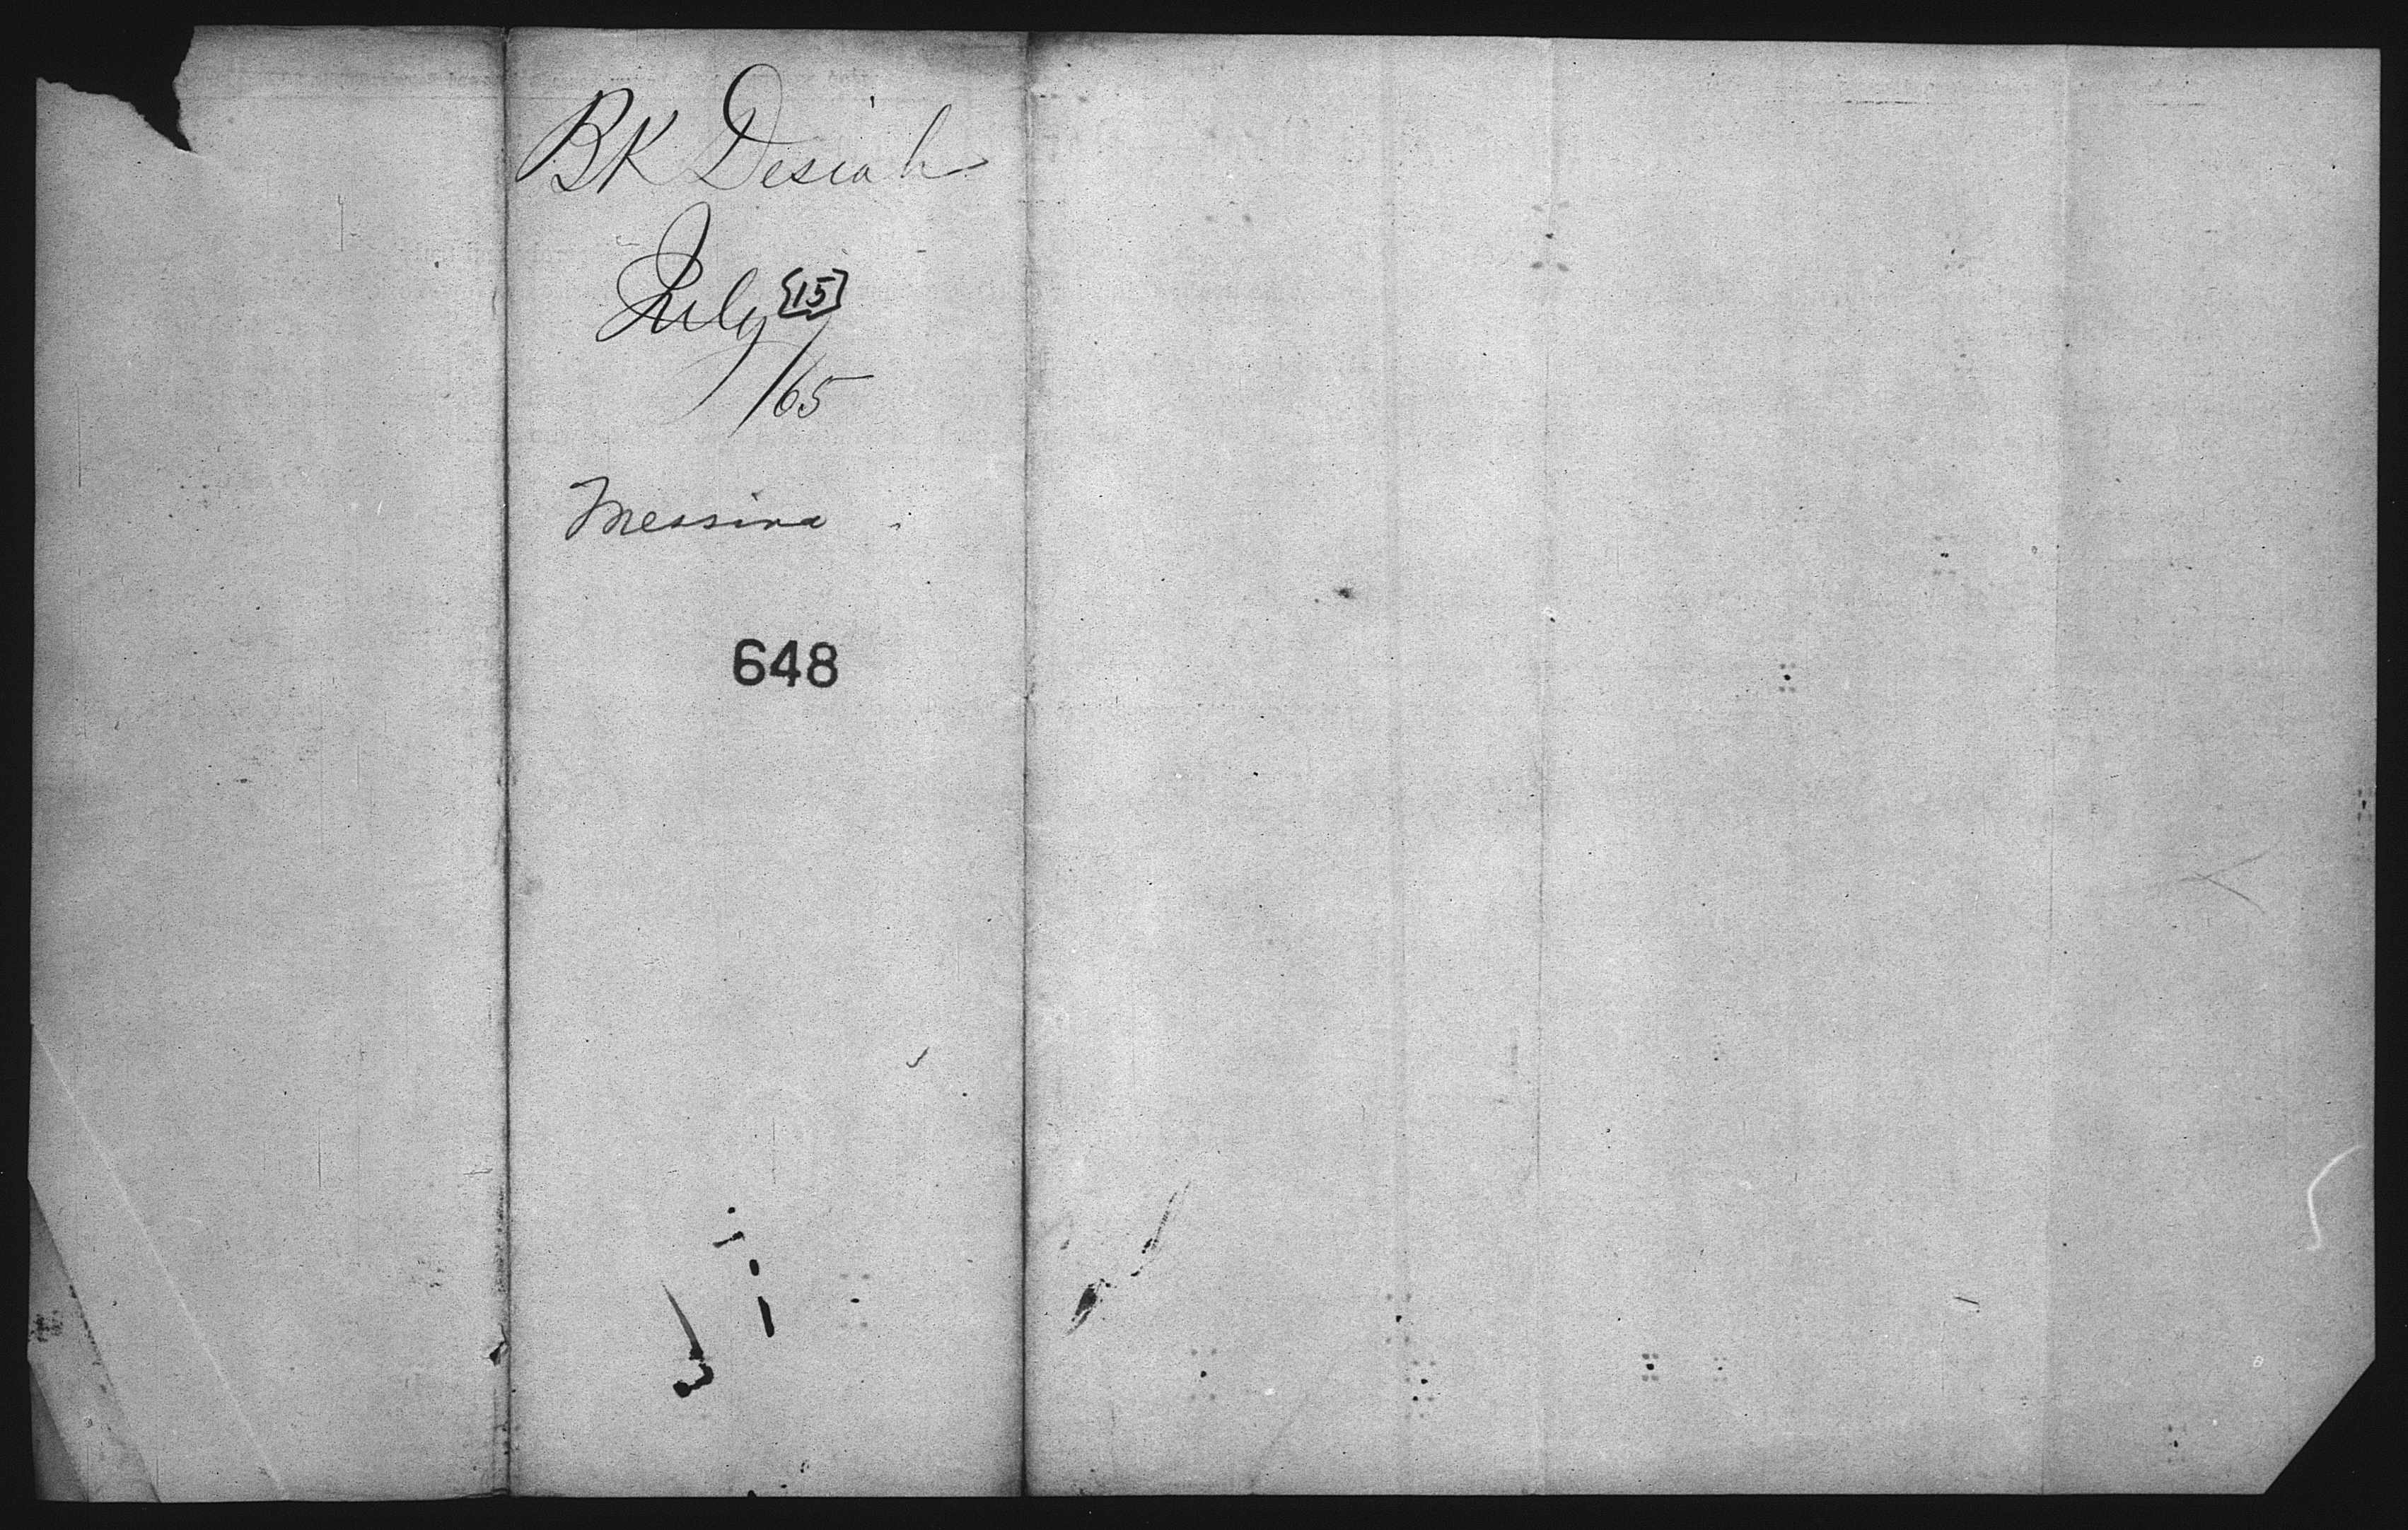 BK Desiah
July [15]
/65
Messina
648